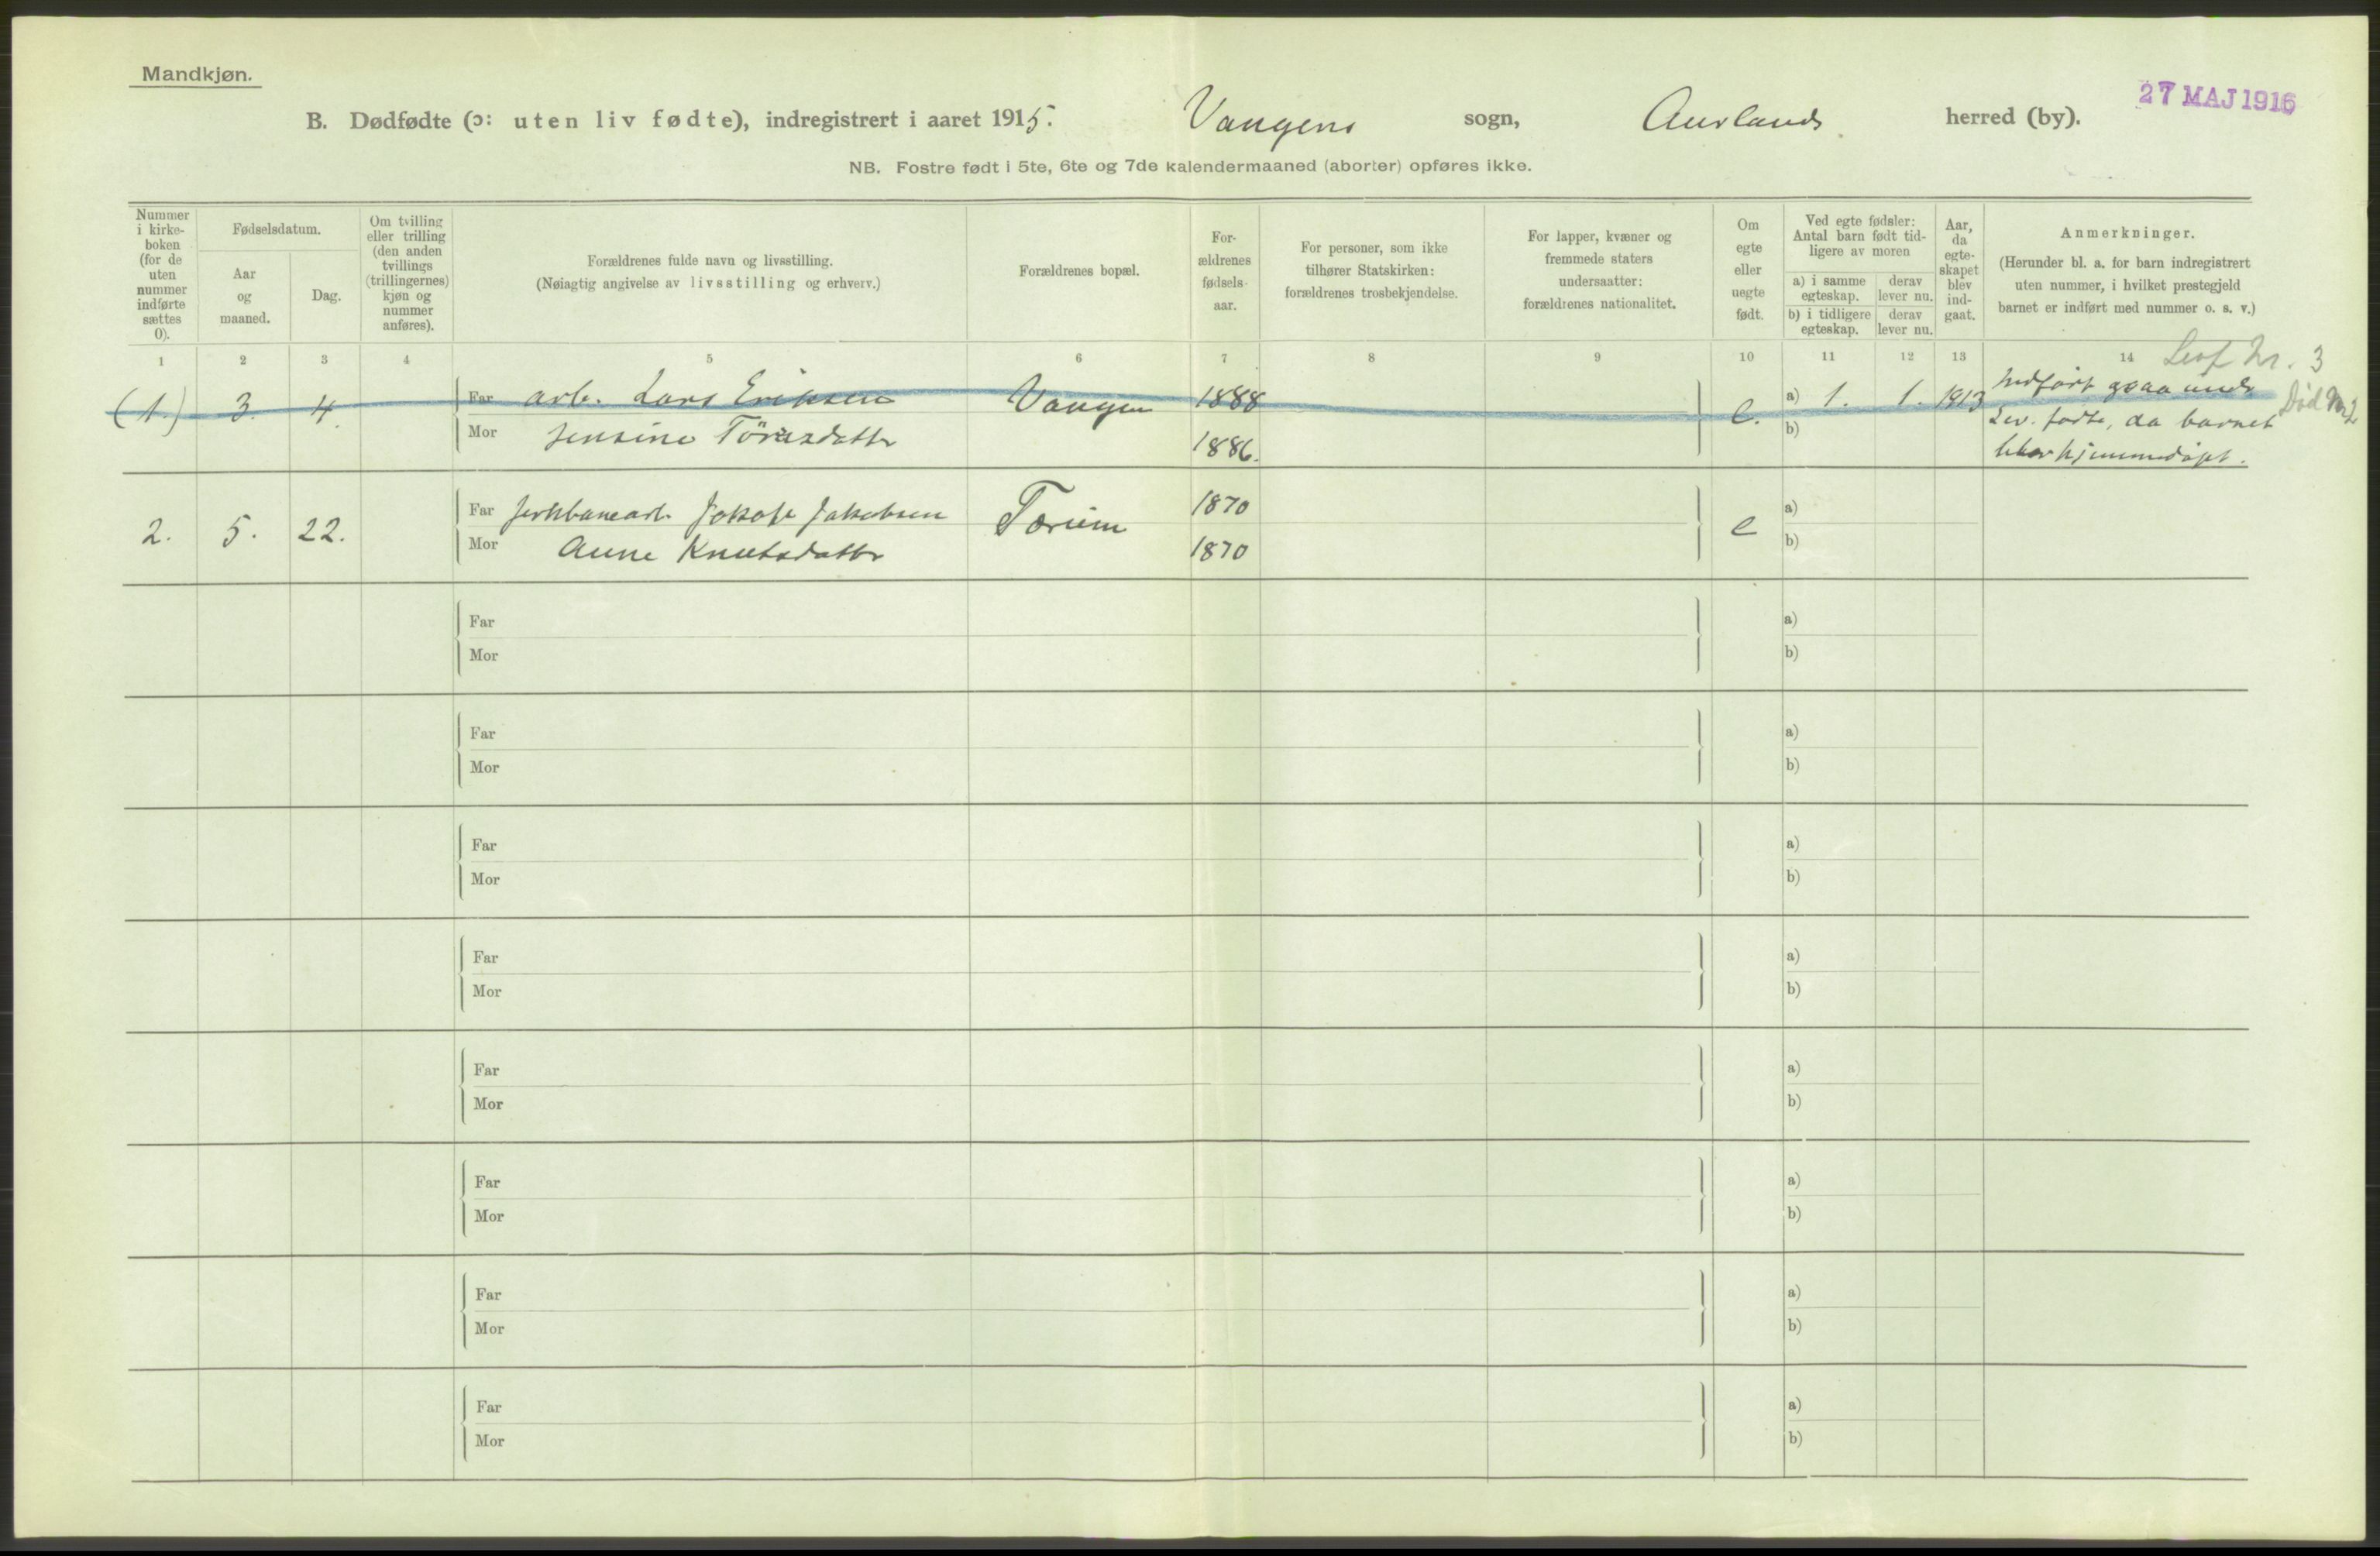 Mandkjøn.
27 MAJ 1916
B. Dødfødte (ɔ: uten liv fødte), indregistrert i aaret 1915. Vangens sogn, Aurlands herred (by).
NB. Fostre født i 5te, 6te og 7de kalendermaaned (aborter) opføres ikke.
Nummer i kirke-boken (for de uten nummer indførte sættes 0).
Fødselsdatum.
Aar og maaned.
Dag.
Om tvilling eller trilling (den anden tvillings (trillingernes) kjøn og nummer anføres).
Forældrenes fulde navn og livsstilling.
(Nøiagtig angivelse av livsstilling og erhverv.)
Forældrenes bopæl.
For-ældrenes fødsels-aar.
For personer, som ikke tilhører Statskirken: forældrenes trosbekjendelse.
For lapper, kvæner og fremmede staters undersaatter: forældrenes nationalitet.
Om egte eller uegte født.
Ved egte fødsler: Antal barn født tid-ligere av moren
a) i samme egteskap.
derav lever nu.
b) i tidligere egteskap.
derav lever nu.
Aar, da egte-skapet blev ind-gaat.
Anmerkninger.
(Herunder bl. a. for barn indregistrert uten nummer, i hvilket prestegjeld barnet er indført med nummer o. s. v.)
1 2 3 4 5 6 7 8 9 10 11 12 13 14
Levf Nr. 3
(1.) 3. 4. Far arb. Lars Eriksen Vangen 1888 e. a) 1. 1. 1913 Indført ogsaa under Død Nr 2
Mor Jensine 1886. b) Lev. fødte, da barnet
blev hjemmedøpt.
2. 5. 22. Far Jernbanearb. Jakob Jakobsen 1870 e a)
Mor Anne Knutsdatter 1870 b)
Far a)
Mor b)
Far a)
Mor b)
Far a)
Mor b)
Far a)
Mor b)
Far a)
Mor b)
Far a)
Mor b)
Far a)
Mor b)
Far a)
Mor b)